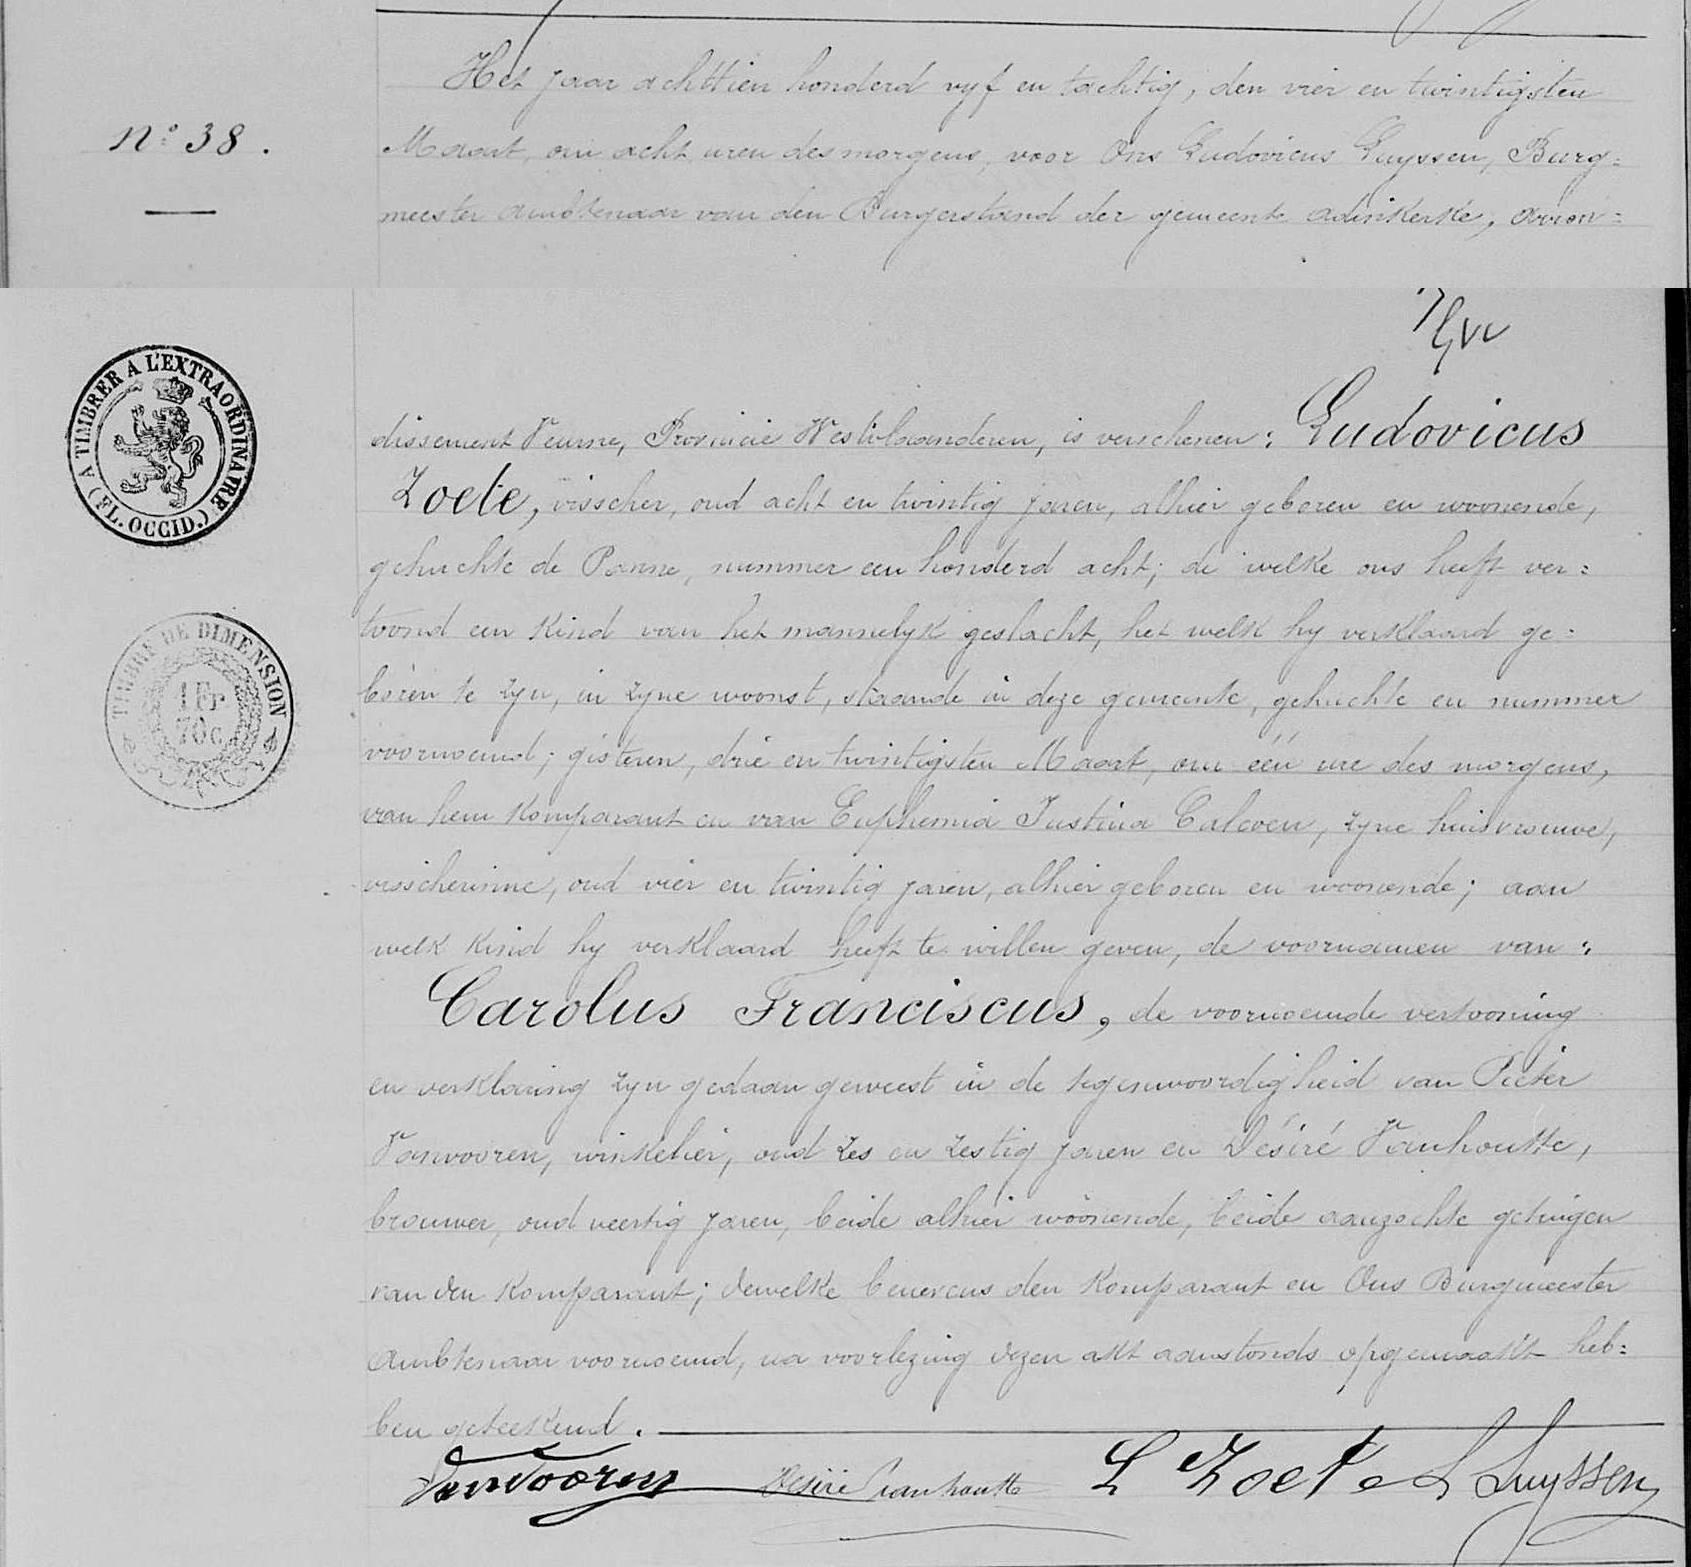 Het jaar achttien honderd vyf en tachtig, den vier en twintigsten
N° 38.
Maart, om acht uren des morgens, voor Ons Ludovicus Luyssen, Burg=
meester ambtenaar van den Burgerstand der gemeente Adinkerke, arron=
dissement Veurne, Provincie Westvlaanderen, is verschenen: Ludovicus
Zoete, visscher, oud acht en twintig jaren, alhier geboren en woonende,
gehuchte de Panne, nummer een honderd acht; de welke ons heeft ver=
toond een kind van het mannelyk geslacht, het welk hy verklaard ge=
boren te zyn, in zyne woonst, staande in deze gemeente, gehuchte en nummer
voornoemd; gisteren, drie en twintigsten Maart, om één ure des morgens,
van hem komparant en van Euphemia Justina Calcoen, zyne huisvrouwe,
visscherinne, oud vier en twintig jaren, alhier geboren en woonende; aan
welk kind hy verklaard heeft te willen geven, de voornamen van:
Carolus Franciscus, de voornoemde vertooning
en verklaring zyn gedaan geweest in de tegenwoordigheid van Pieter
Vanvooren, winkelier, oud zes en zestig jaren en Désiré Vanhoutte,
brouwer, oud veertig jaren, beide alhier woonende, beide aanzochte getuigen
van den komparant; dewelke benevens den komparant en Ons Burgmeester
Ambtenaar voornoemd, na voorlezing dezen akt aanstonds opgemaakt heb=
ben geteekend.
Vanvooren Désiré Vanhoutte L Zoete L Luyssen
A TIMBRER A L'EXTRAORDINAIRE
(FL. OCCID.)
TIMBRE DE DIMENSION
1 Fr
70c